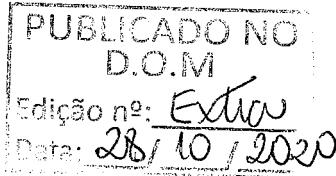 PUBLICADO NO
D.O.M
Edição nº: Extra
Data: 28/ 10 / 2020